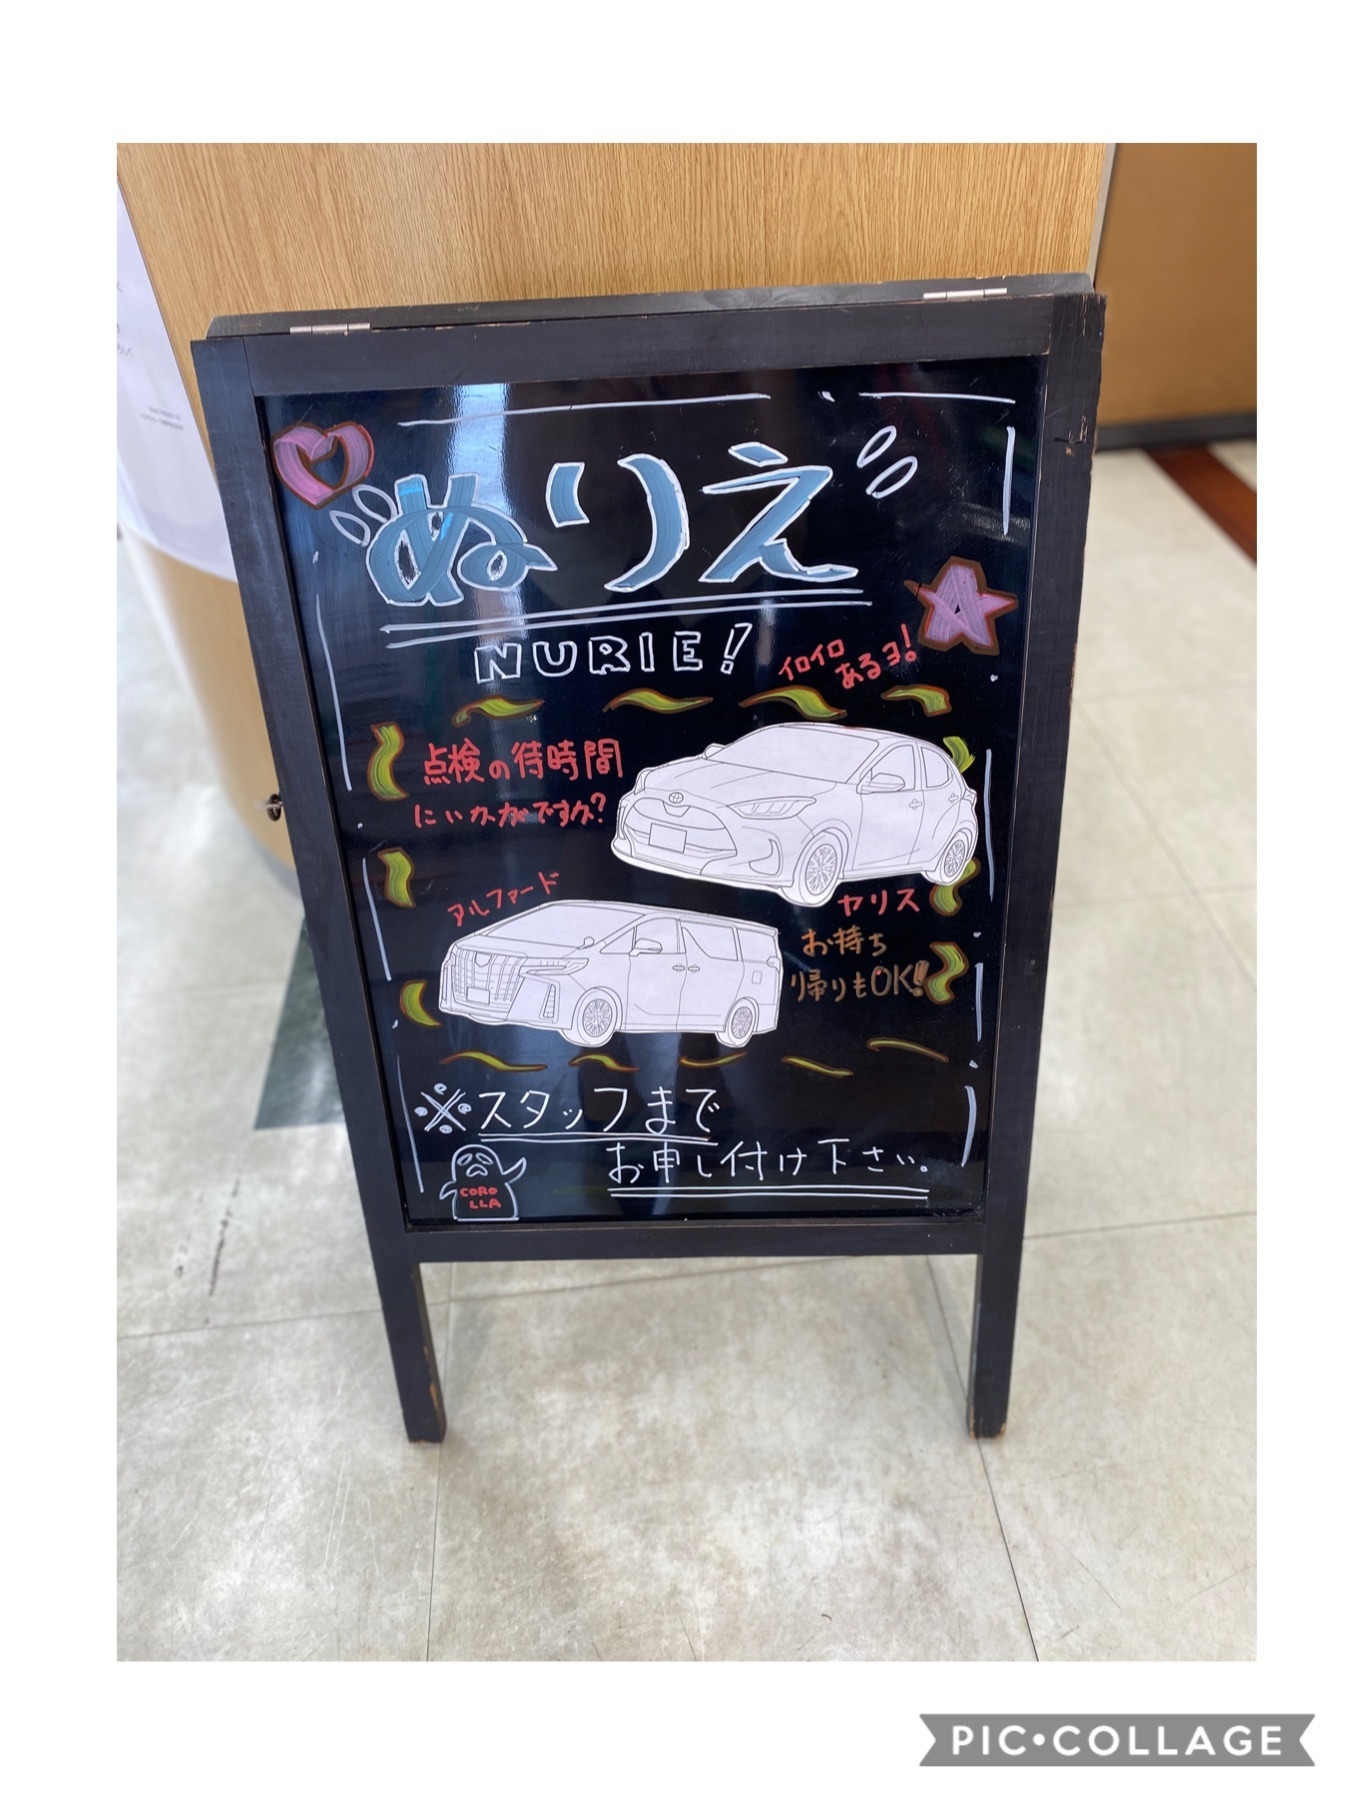 ぬりえ
NURIE!
イロイロ
あるヨ!
点検の待時間
にいかがですか?
アルファード
ヤリス
お持ち
帰りもOK!!
※スタッフまで
お申し付け下さい。
CORO
LLA
PIC•COLLAGE